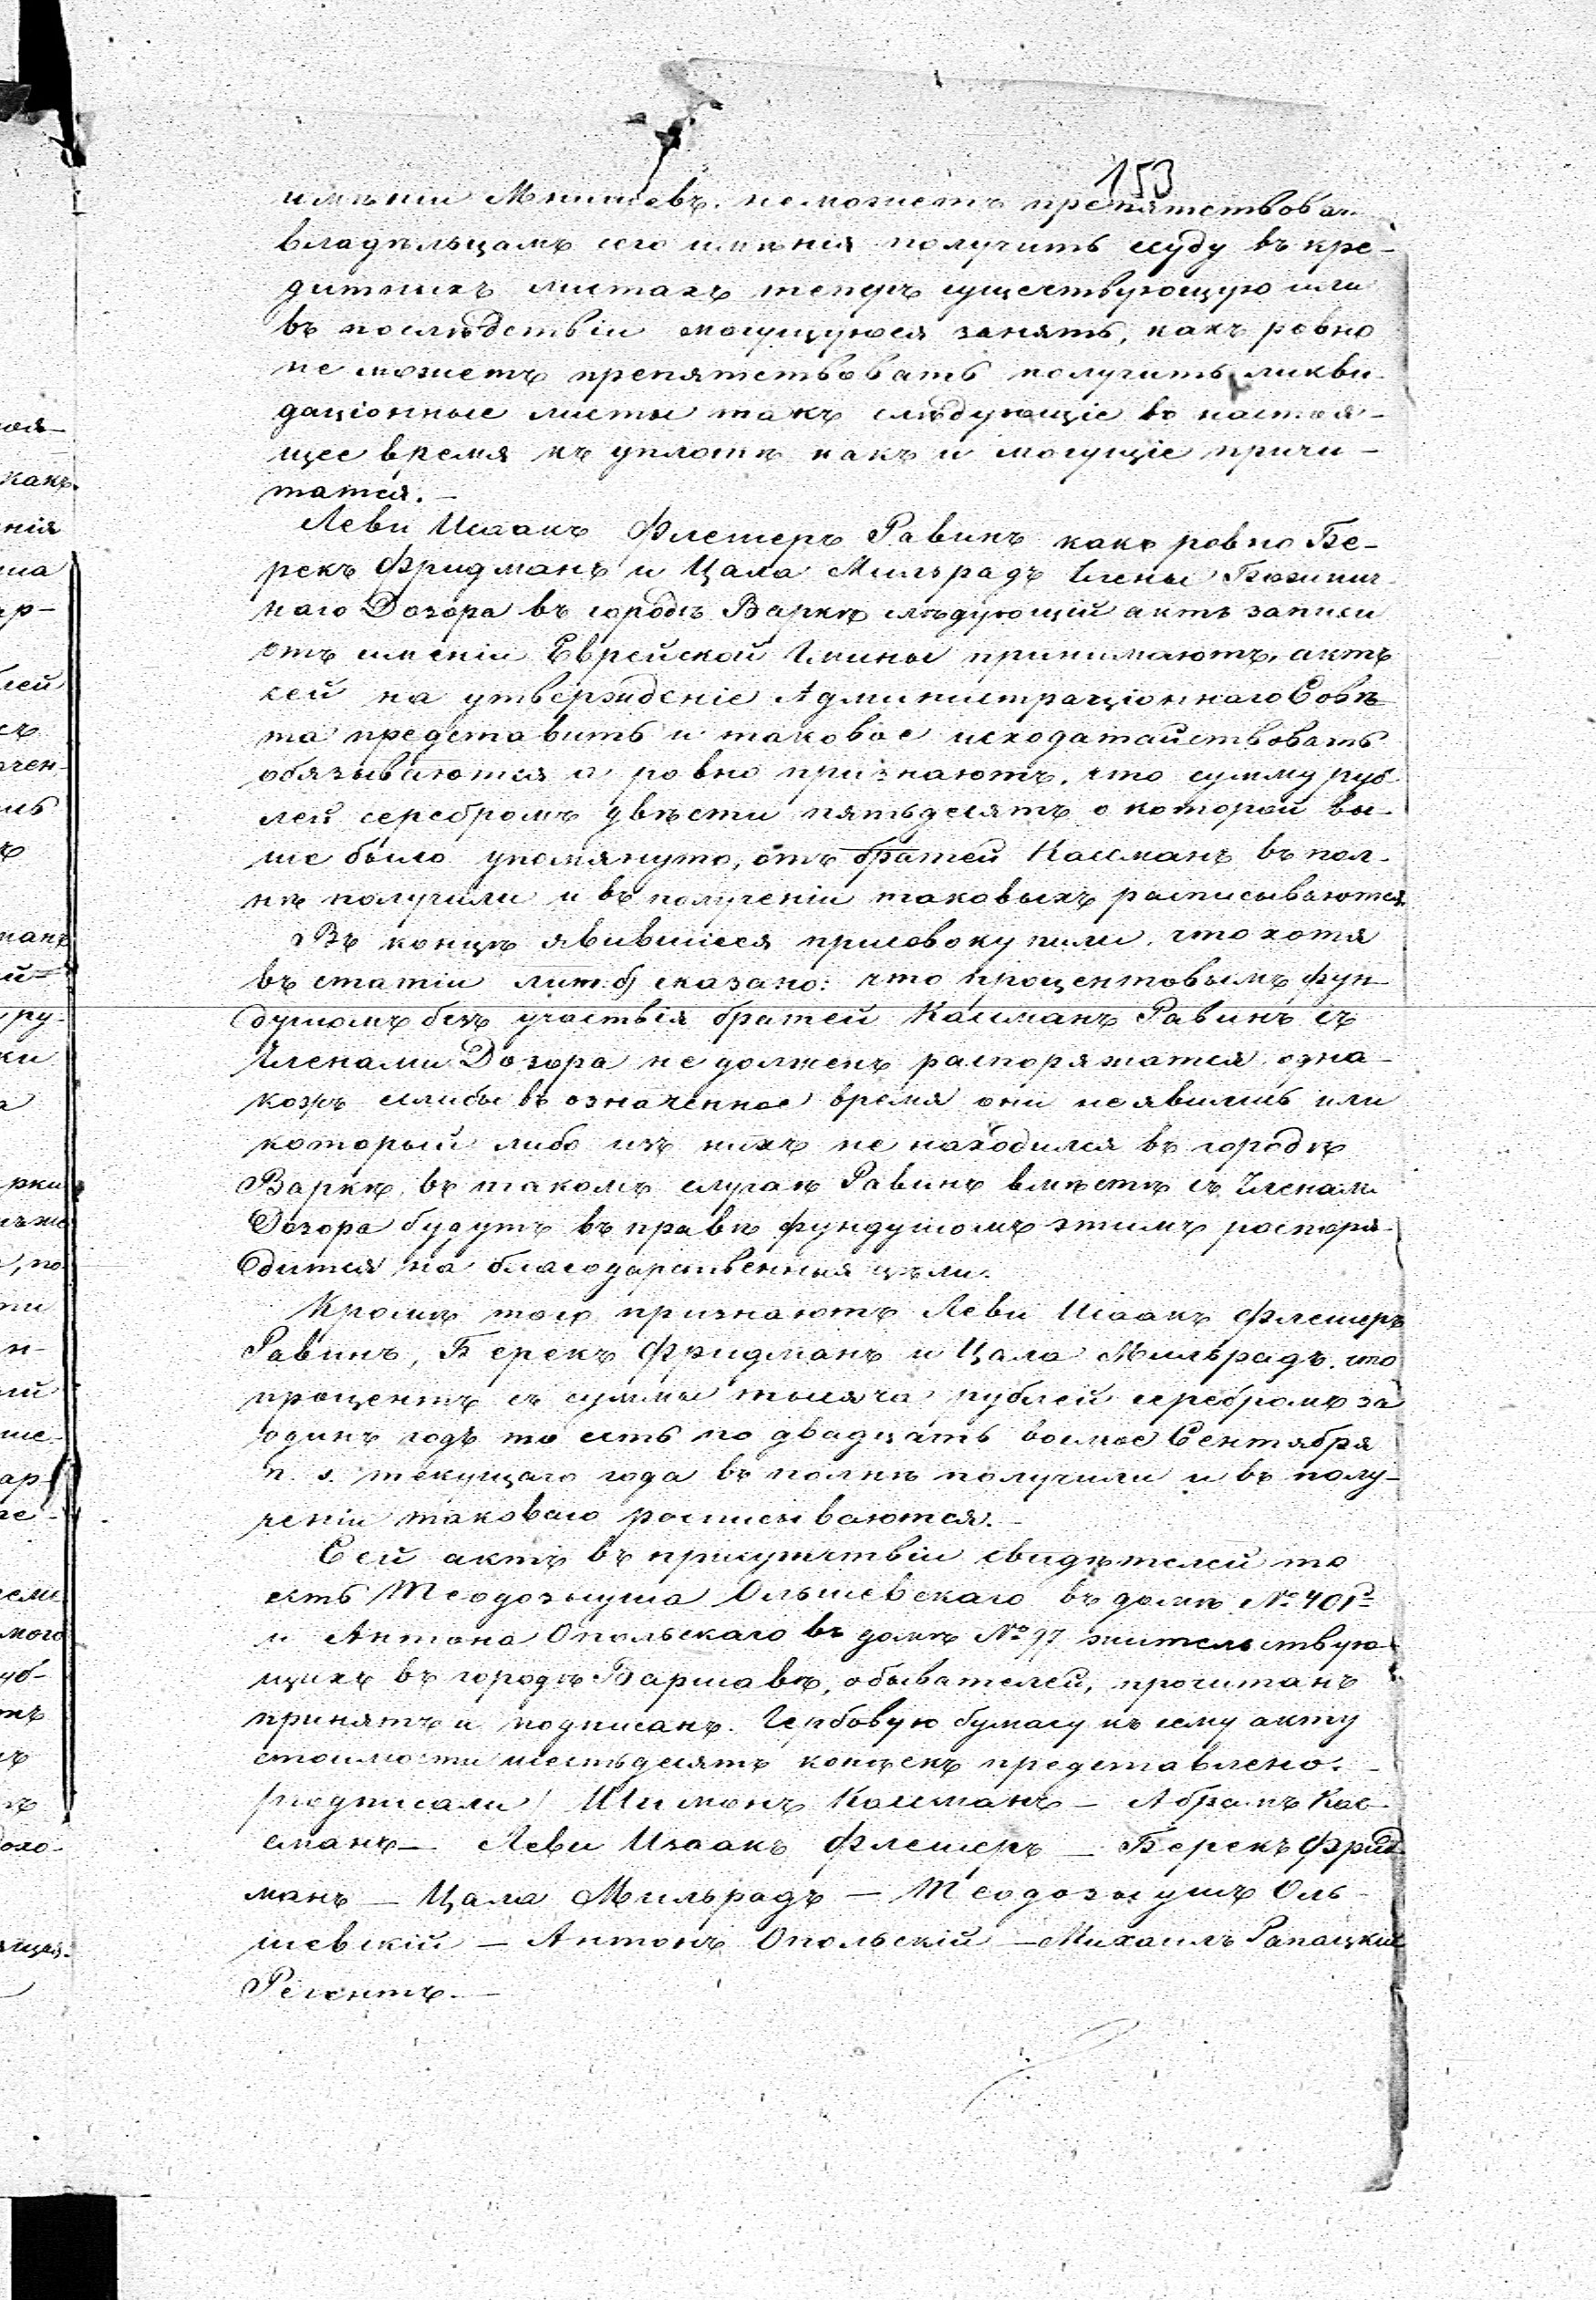 153
имѣнiи Мнишевъ. неможетъ препятствовать
владѣльцамъ сего имѣнiя получить ссуду въ кре-
дитныхъ листахъ теперь существующую или
въ послѣдствiи могущуюся занять, какъ ровно
не можетъ препятствовать получить ликви-
дацiонные листы такъ слѣдующiе въ настоя-
щее время къ уплатѣ какъ и могущiе причи-
татся.—
Леви Исаакъ Флешеръ Равинъ какъ ровно Бе-
рекъ Фридманъ и Цала Мильрадъ Члены Божнич-
наго Дозора въ городѣ Варкѣ слѣдующiй актъ записи
отъ имѣнiи Еврейской Гмины принимаютъ, актъ
сей на утвержденiе Административнаго Совѣ-
та представить и таковое исходатайствовать
обязываются и ровно признаютъ, что сумму руб-
лей серебромъ двѣсти пятьдесятъ о которой вы-
ше было упомянуто, отъ братей Касманъ въ пол-
нѣ получили и въ полученiи таковыхъ расписываются
Въ концѣ явившиеся присовокупили, что хотя
въ статiи лит: б) сказано: что процентовымъ фун-
душомъ безъ участвiя братей Касманъ Равинъ съ
Членами Дозора не долженъ распоряжатся, одна-
кожъ еслибы въ означенное время они неявились или
который либо изъ нихъ не находился въ городѣ
Варкѣ, въ такомъ случаѣ Равинъ вмѣстѣ съ Членами
Дозора будутъ въ правѣ фундушомъ этимъ распоря-
дится на благодарственныя цѣли.
Кромѣ того признаютъ Леви Исаакъ Флешеръ
Равинъ, Берекъ Фридманъ и Цала Мильрадъ, что
процентъ съ суммы тысяча рублей серебромъ за
одинъ годъ то есть по двадцать восмое Сентября
н. s. текущаго года въ полнѣ получили и въ полу-
ченiи таковаго росписываются.—
Сей актъ въ присутствiи свидѣтелей то
есть Теодозыуша Ольшевскаго въ домѣ № 401
и Антона Опольскаго въ домѣ № 97 жительствую-
щихъ въ городѣ Варшавѣ, обывателей, прочитанъ
принятъ и подписанъ. Гербовую бумагу къ сему акту
стоимости шестьдесятъ копѣекъ представлено.—
подписали / Шимонъ Касманъ — Абрамъ Кас-
сманъ — Леви Изаакъ Флешеръ — Берекъ Фрид-
манъ — Цала Мильрадъ — Теодозыушъ Оль-
шевскiй — Антонъ Опольскiй — Михаилъ Рапацкiй
Регентъ.—